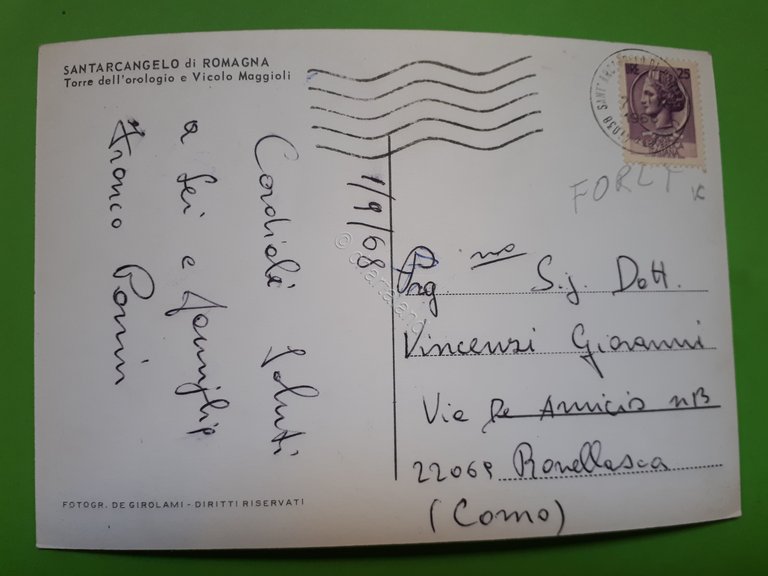 SANTARCANGELO di ROMAGNA
Torre dell'orologio e Vicolo Maggioli
1/9/68
Cordiali Saluti
a Lei e famiglia
Franco
FOTOGR. DE GIROLAMI - DIRITTI RISERVATI
25
FORLI
Preg mo Sig. Dott.
Vincenzi Giovanni
Via De Amicis n
22069 Rovellasca
(Como)